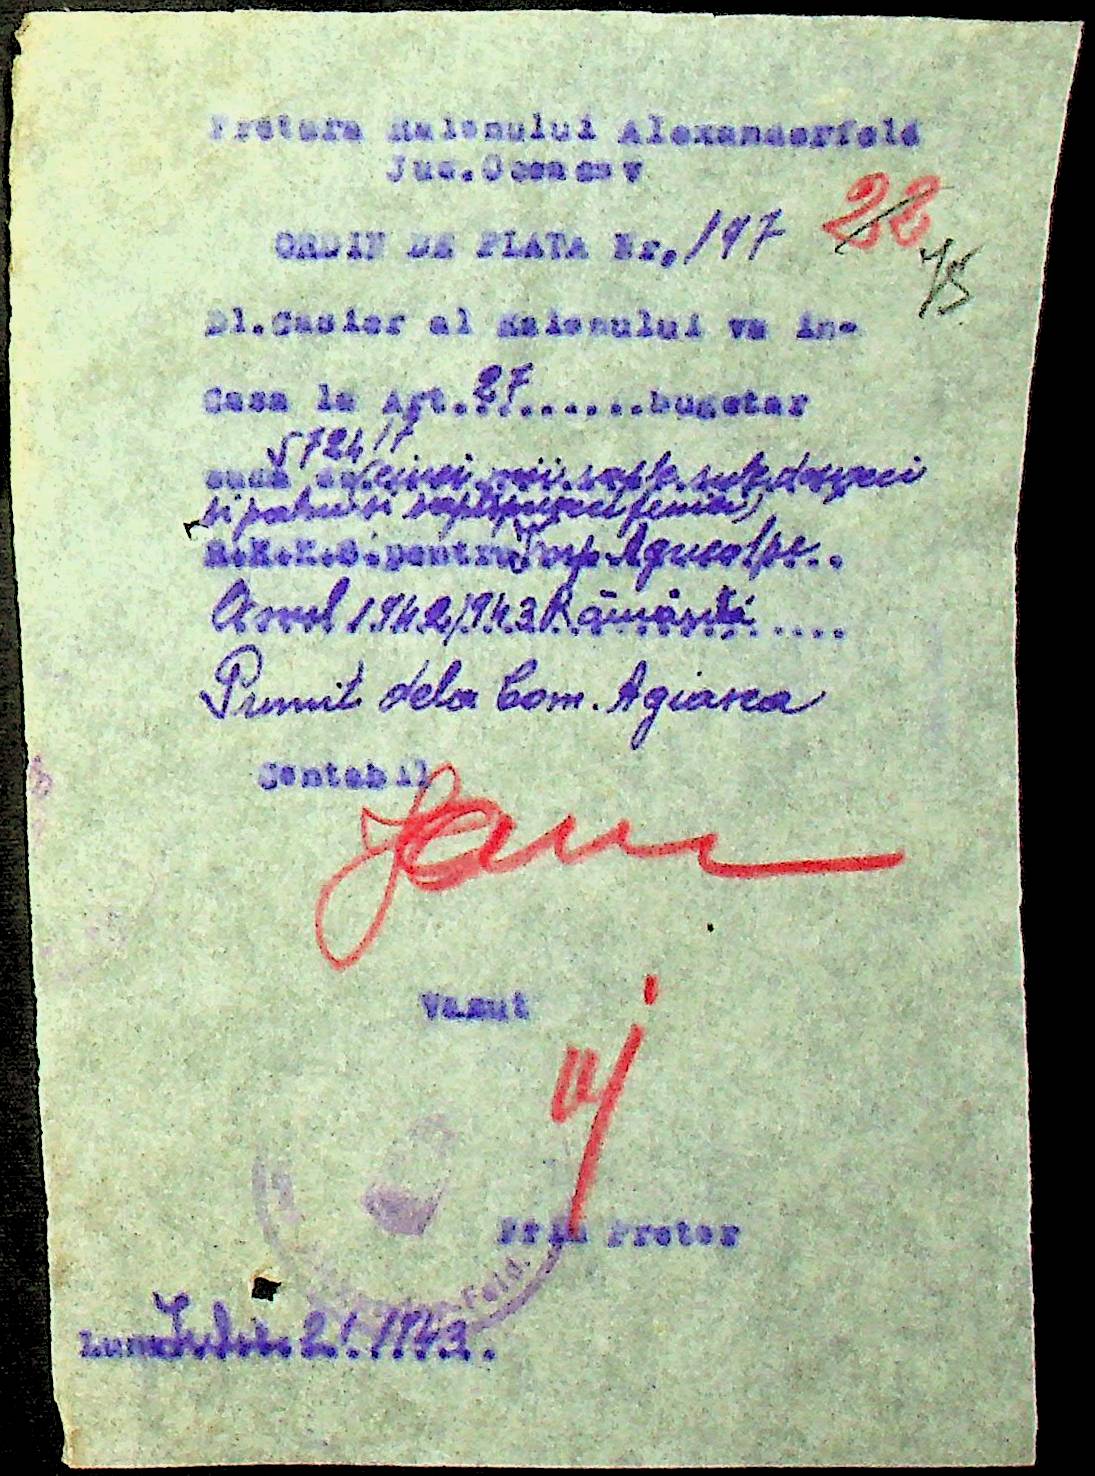 Pretura Raionului Alexanderfeld
Jud.Oceacov
22
ORDIN DE PLATA Nr. 197
75
Dl.Casier al Raionului va in-
Casa la Art. 27 ......bugetar
5724/7
suma de (cinci mii sapte sute douazeci
si patru si
R.M.K.S.pentru
1942/943 Rămăsită
Primit dela Com. Agiasca
Contabil
Vazut
Prim Pretor
Feld.
Luna Iulie 21 1943.